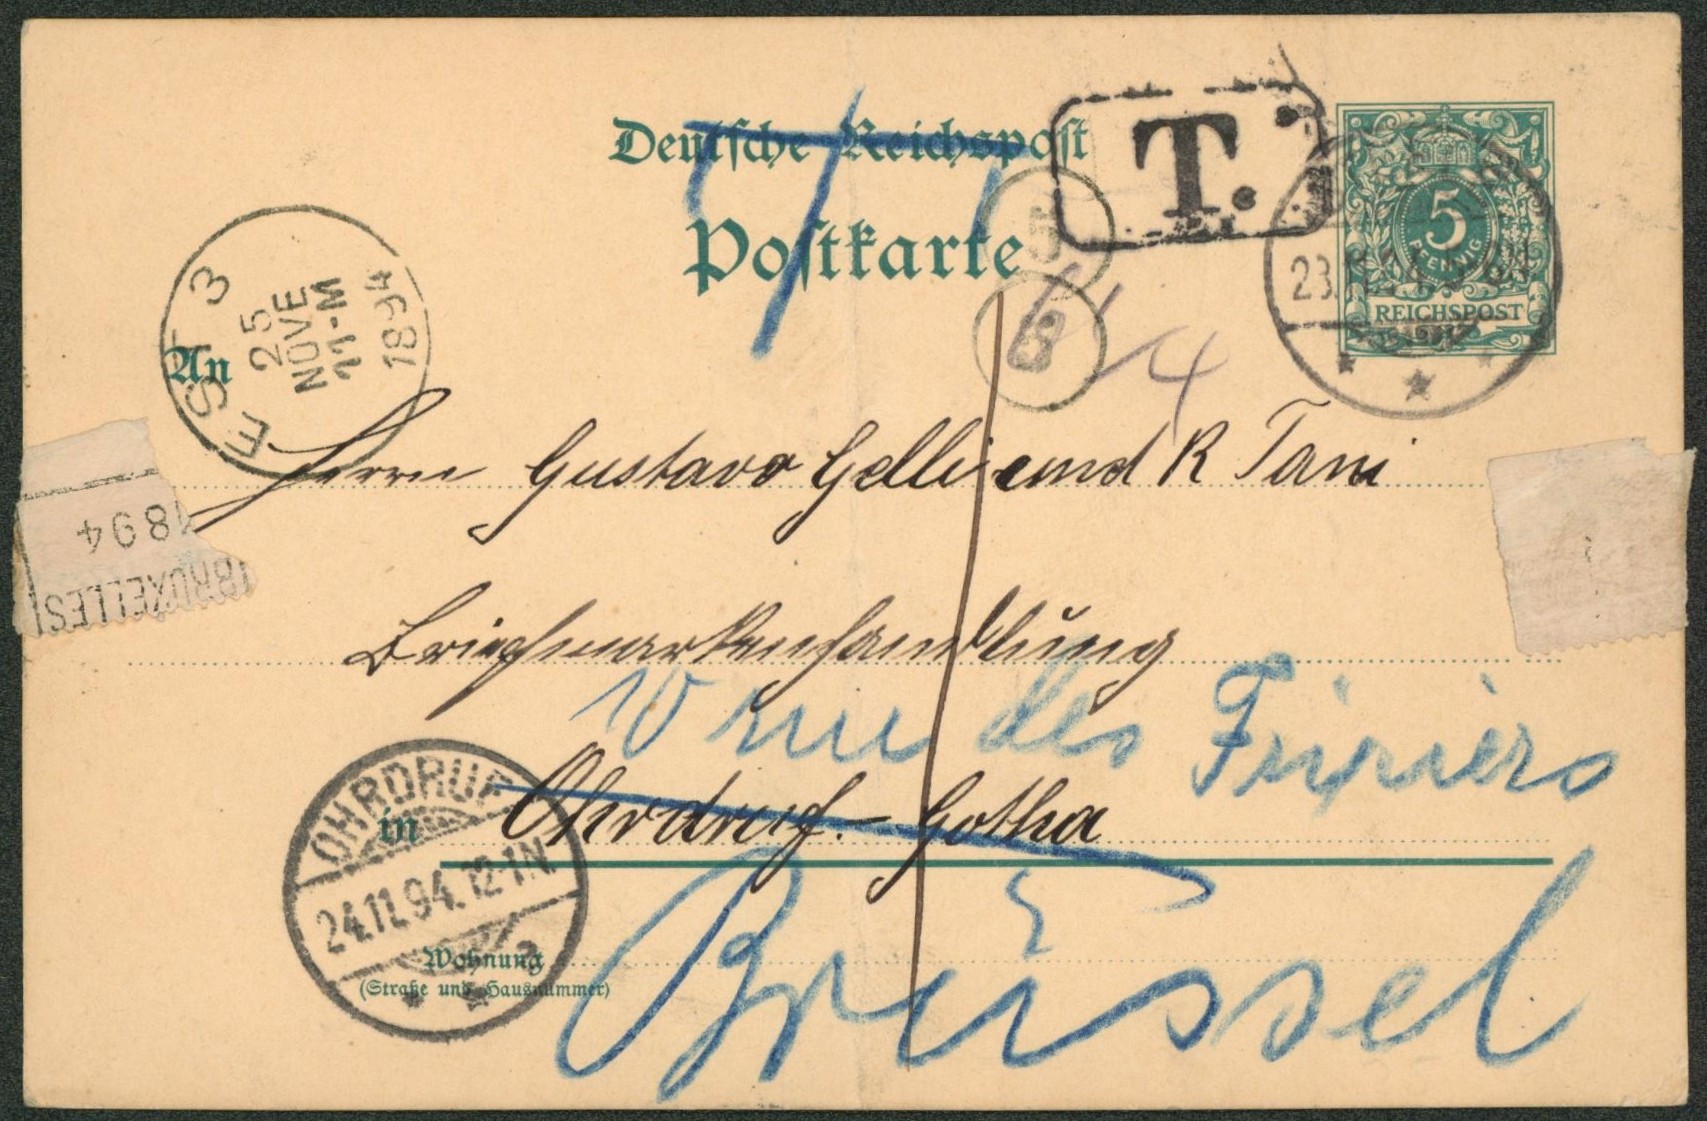 Deutsche Reichspost
Postkarte
T.
5
PFENNIG
REICHSPOST
5
B
1/4
EST 3
25
NOVE
11-M
1894
An
Herrn Gustavo Gelli und R Tani
1894
BRUXELLES
Briefmarkenhandlung
10 rue des Fripiers
in Ohrdruf. - Gotha
OHRDRUF
24.11.94.12-1N
a
Brüssel
Wohnung
(Straße und Hausnummer)